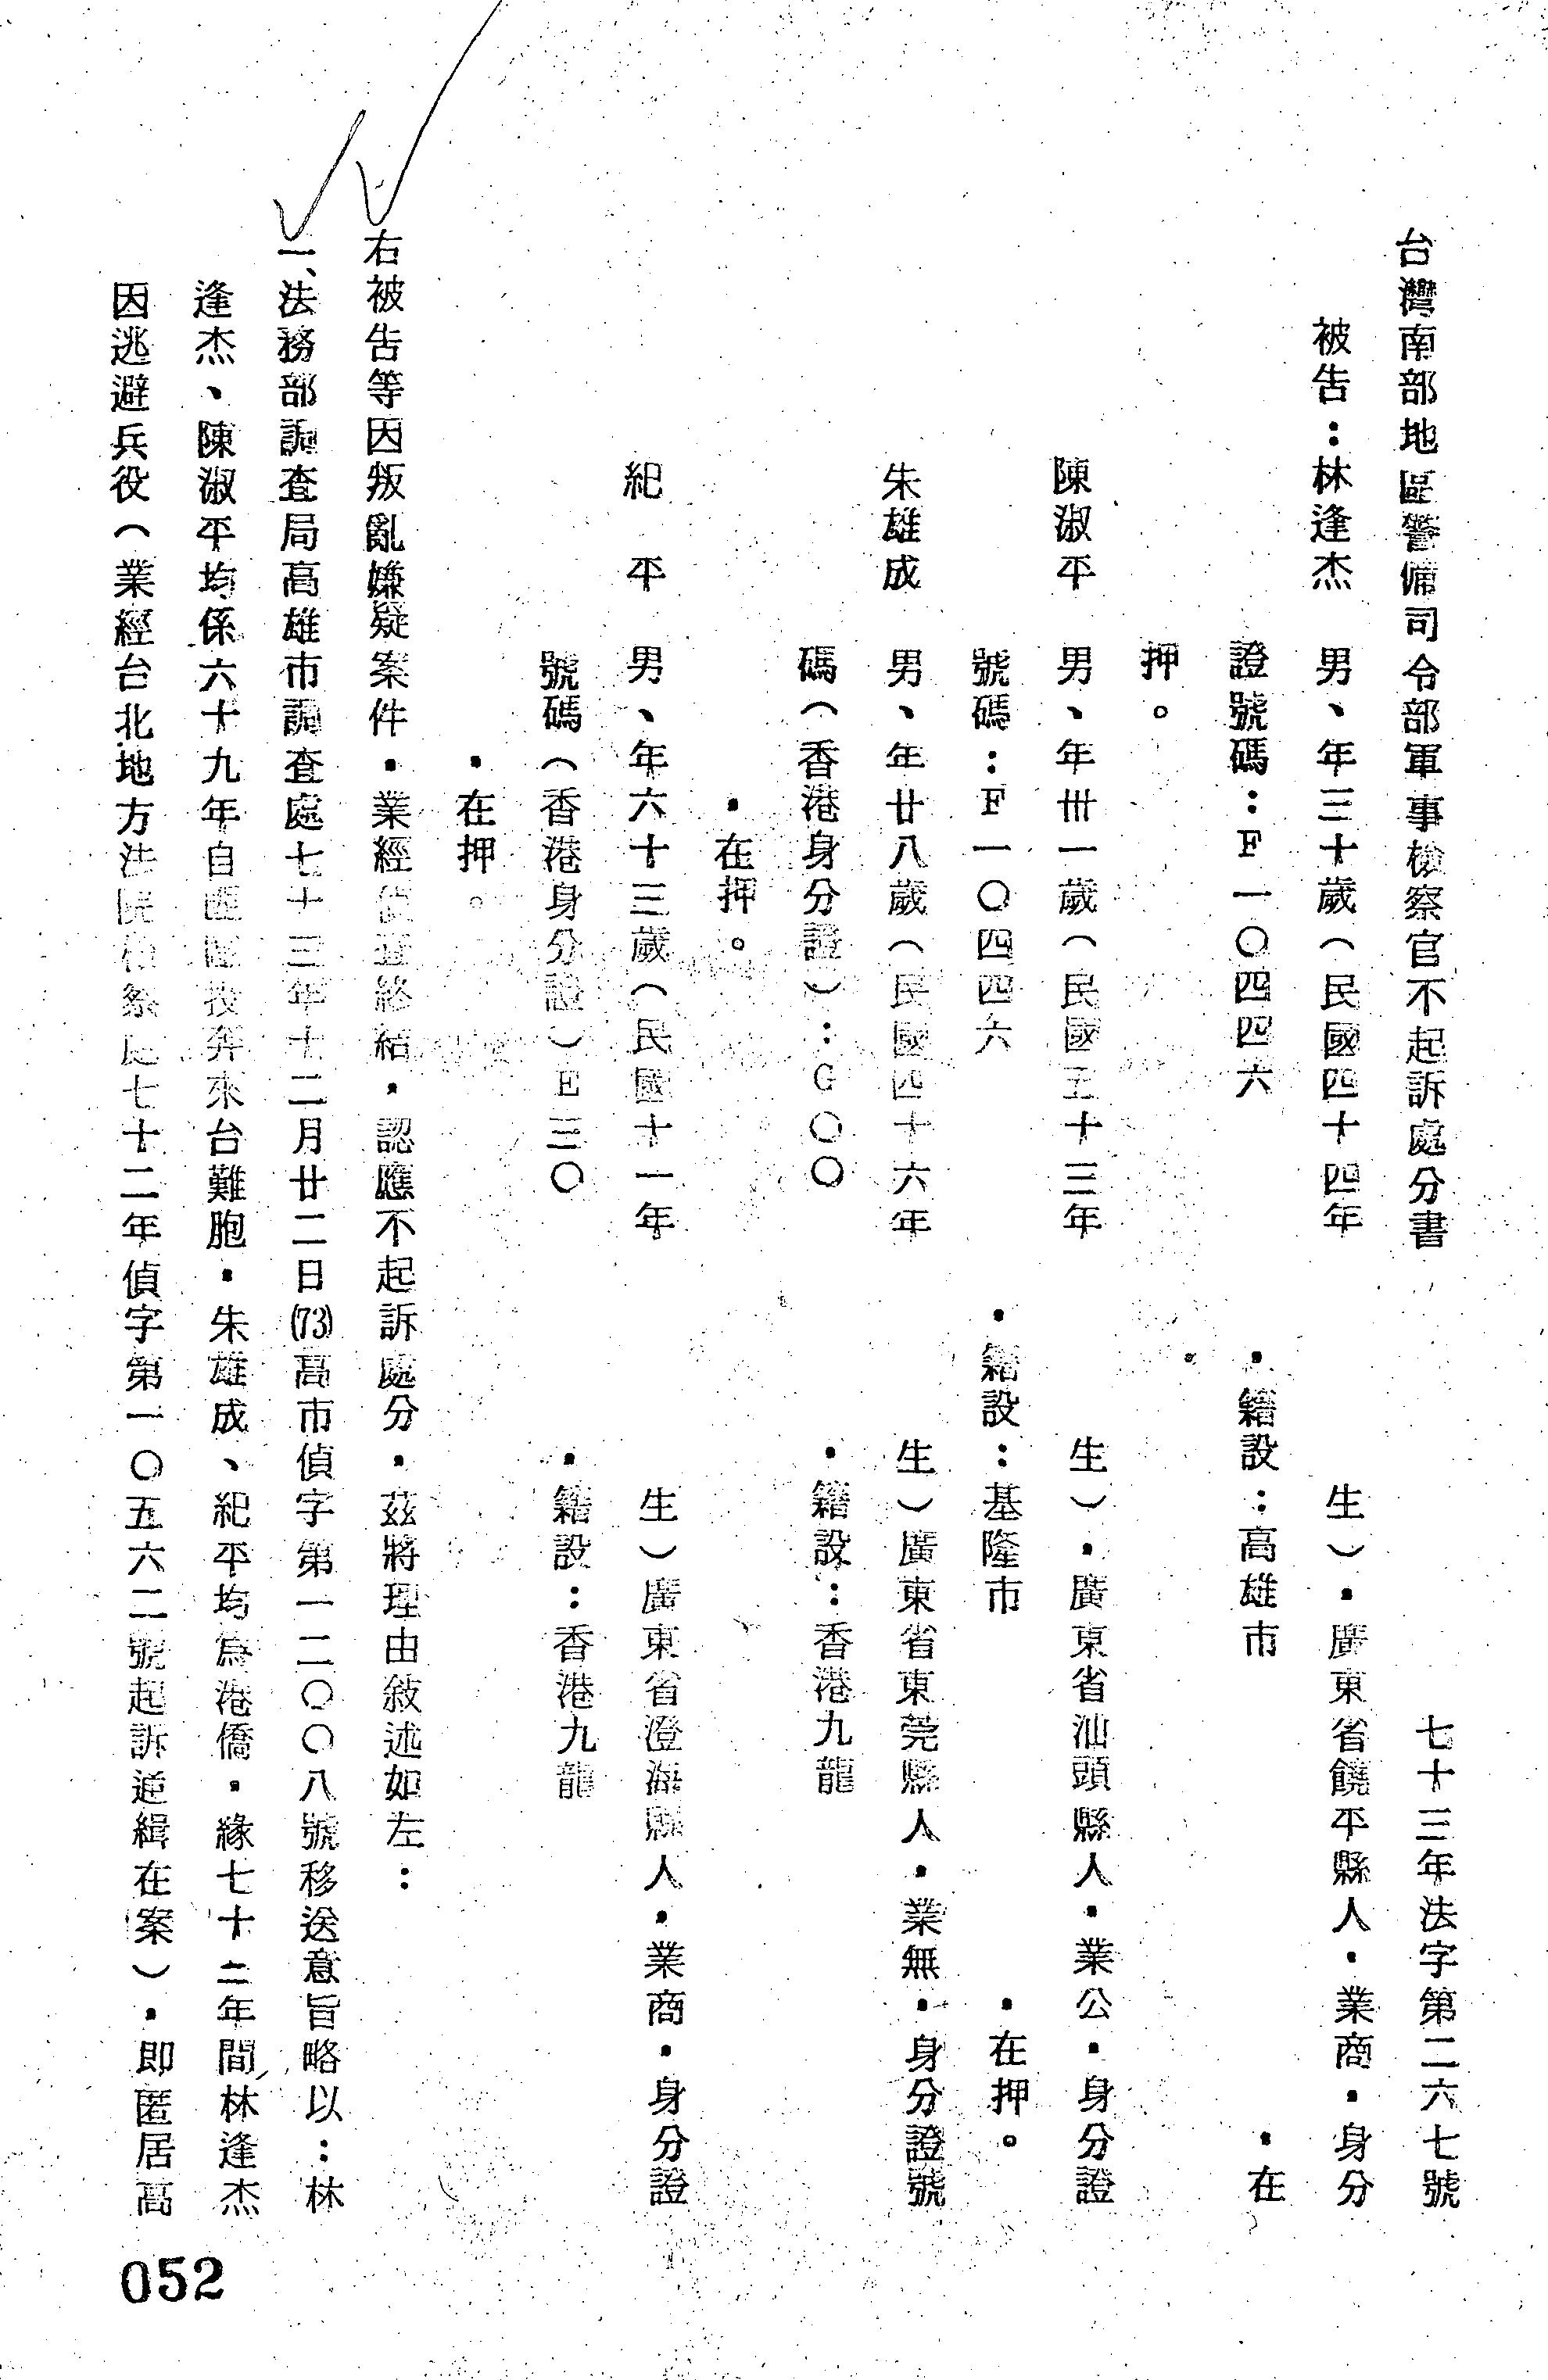 台灣南部地區警備司令部軍事檢察官不起訴處分書
七十三年法字第二六七號
被告：林逢杰　男、年三十歲（民國四十四年　生）・廣東省饒平縣人・業商・身分
證號碼：F一〇四四六　・籍設：高雄市　・在
押。
陳淑平　男、年卅一歲（民國五十三年　生）・廣東省汕頭縣人・業公・身分證
號碼：F一〇四四六　・籍設：基隆市　・在押。
朱雄成　男、年廿八歲（民國四十六年　生）廣東省東莞縣人・業無・身分證號
碼（香港身分證）：G〇〇　・籍設：香港九龍
・在押。
紀　平　男、年六十三歲（民國十一年　生）廣東省澄海縣人・業商・身分證
號碼（香港身分證）E三〇　・籍設：香港九龍
・在押。
右被告等因叛亂嫌疑案件・業經偵查終結・認應不起訴處分・茲將理由敍述如左：
一、法務部調查局高雄市調查處七十三年十二月廿二日(73)高市偵字第一二〇〇八號移送意旨略以：林
逢杰、陳淑平均係六十九年自匪區投奔來台難胞・朱雄成、紀平均為港僑・緣七十二年間林逢杰
因逃避兵役（業經台北地方法院檢察處七十二年偵字第一〇五六二號起訴逆緝在案）・即匿居高
052